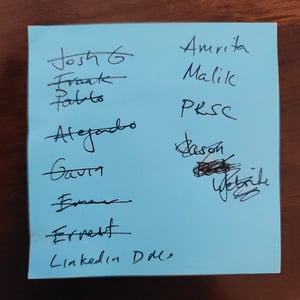 Josh G
Frank
Pablo
Alejandro
Gavin
Ernest
Linkedin DMs
Amrita
Malik
PRSC
Jason
website